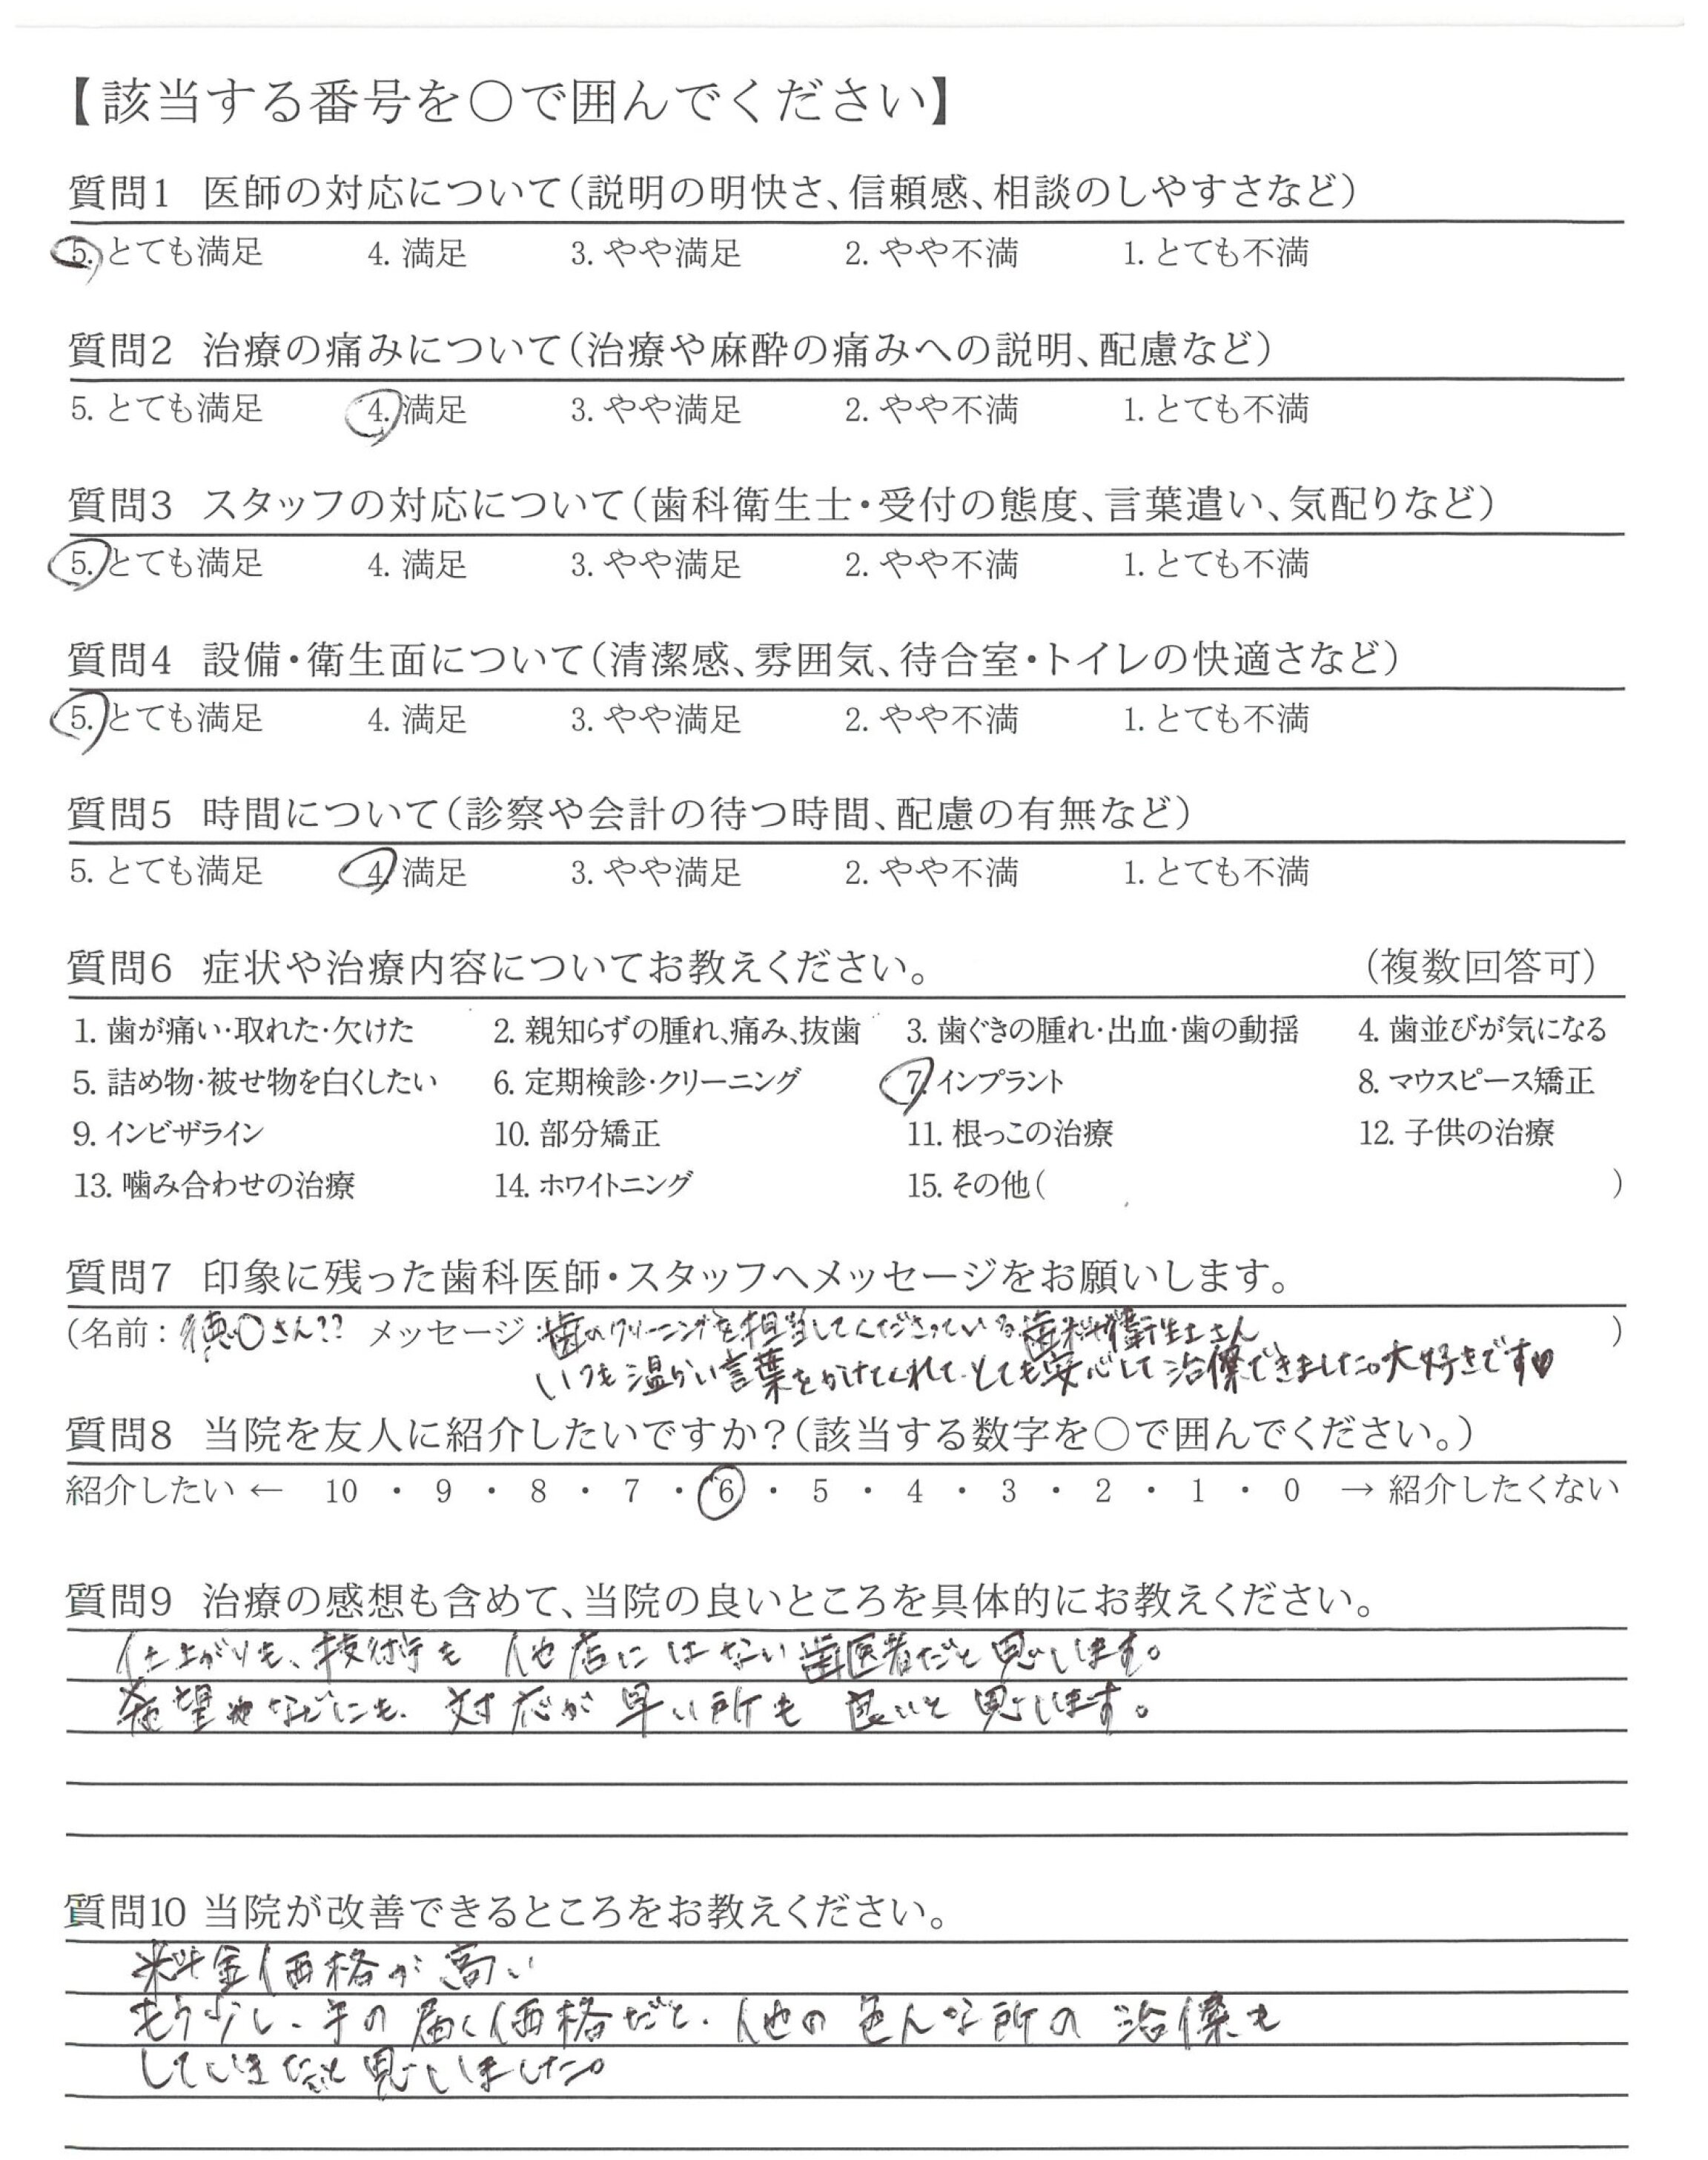 【該当する番号を〇で囲んでください】
質問1 医師の対応について(説明の明快さ、信頼感、相談のしやすさなど)
5. とても満足 4. 満足 3. やや満足 2. やや不満 1. とても不満
質問2 治療の痛みについて(治療や麻酔の痛みへの説明、配慮など)
5. とても満足 4. 満足 3. やや満足 2. やや不満 1. とても不満
質問3 スタッフの対応について(歯科衛生士・受付の態度、言葉遣い、気配りなど)
5. とても満足 4. 満足 3. やや満足 2. やや不満 1. とても不満
質問4 設備・衛生面について(清潔感、雰囲気、待合室・トイレの快適さなど)
5. とても満足 4. 満足 3. やや満足 2. やや不満 1. とても不満
質問5 時間について(診察や会計の待つ時間、配慮の有無など)
5. とても満足 4. 満足 3. やや満足 2. やや不満 1. とても不満
質問6 症状や治療内容についてお教えください。 (複数回答可)
1. 歯が痛い・取れた・欠けた 2. 親知らずの腫れ、痛み、抜歯 3. 歯ぐきの腫れ・出血・歯の動揺 4. 歯並びが気になる
5. 詰め物・被せ物を白くしたい 6. 定期検診・クリーニング 7. インプラント 8. マウスピース矯正
9. インビザライン 10. 部分矯正 11. 根っこの治療 12. 子供の治療
13. 噛み合わせの治療 14. ホワイトニング 15. その他( )
質問7 印象に残った歯科医師・スタッフへメッセージをお願いします。
(名前: 徳〇さん?? メッセージ:歯のクリーニングを担当してくださっている歯科衛生士さん )
いつも温かい言葉をかけてくれて、とても安心して治療できました。大好きです♥
質問8 当院を友人に紹介したいですか?(該当する数字を〇で囲んでください。)
紹介したい ← 10 ・ 9 ・ 8 ・ 7 ・ 6 ・ 5 ・ 4 ・ 3 ・ 2 ・ 1 ・ 0 → 紹介したくない
質問9 治療の感想も含めて、当院の良いところを具体的にお教えください。
仕上がりも、技術も 他店にはない歯医者だと思います。
希望などにも、対応が早い所も 良いと思います。
質問10 当院が改善できるところをお教えください。
料金価格が高い
もう少し、手の届く価格だと、他の色んな所の治療も
していきたいと思いました。